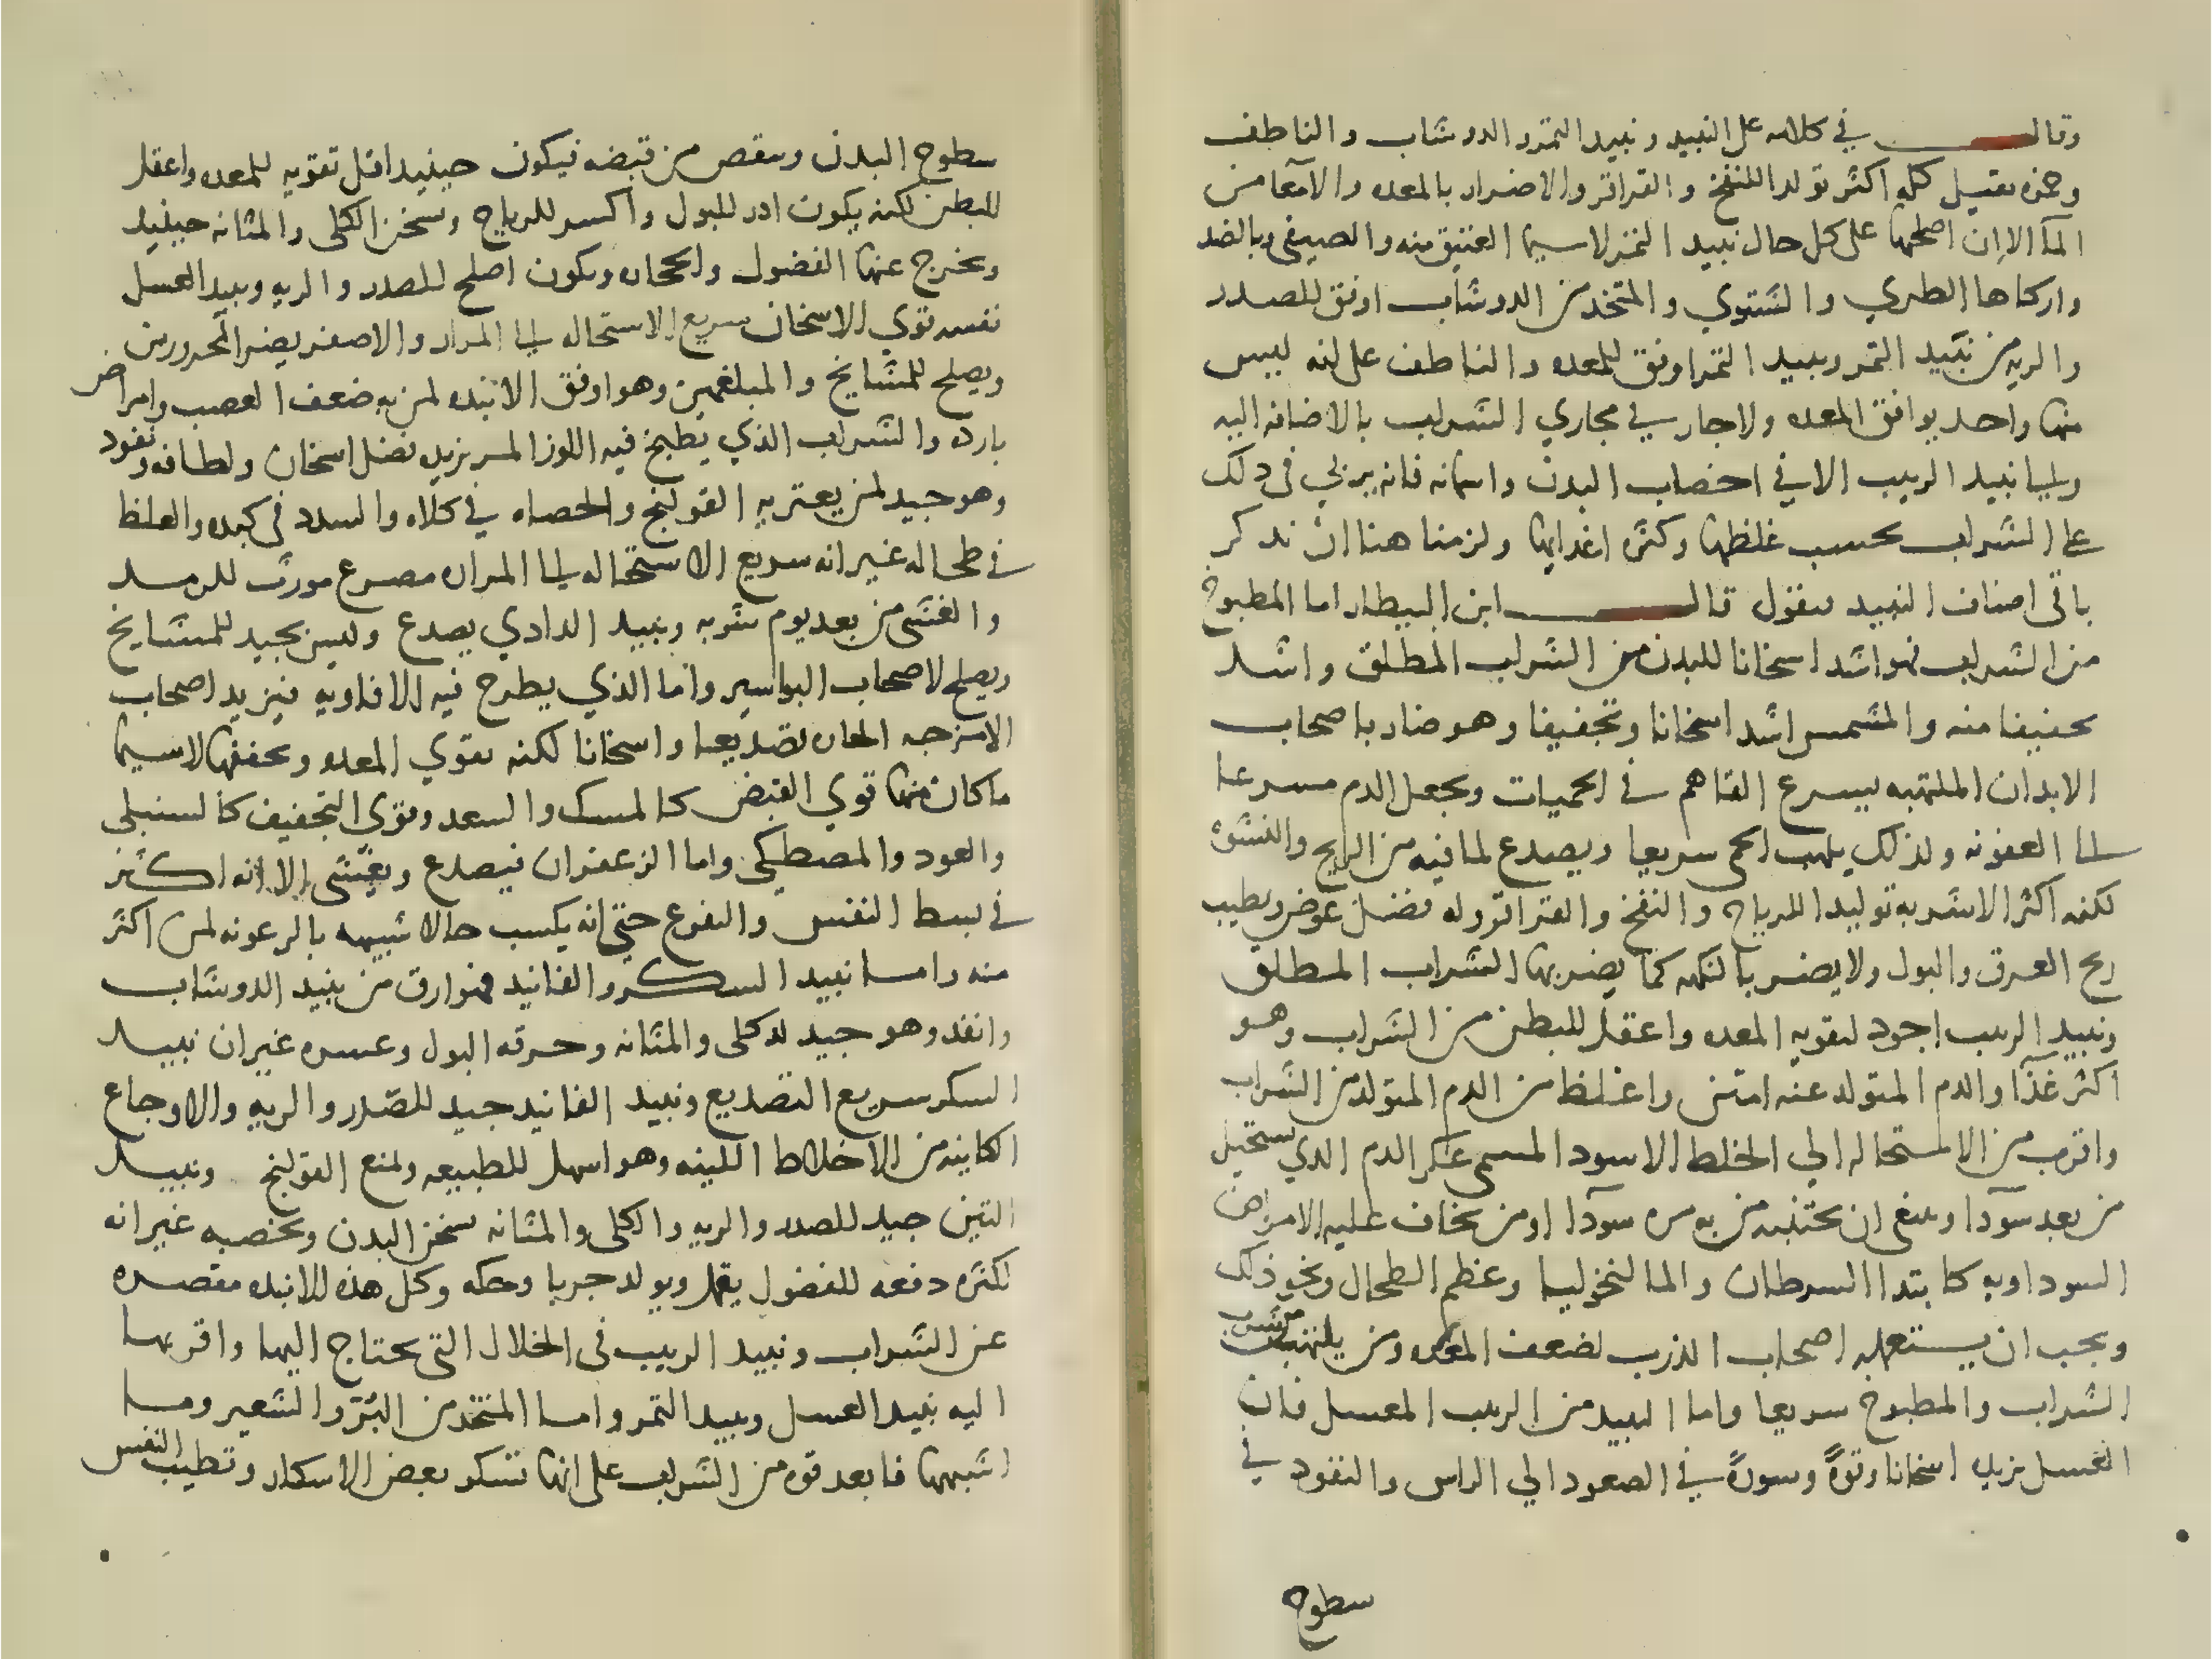 وقال في كلامه على النبيد ونبيد التمر والدوشاب والناطف
وهده ثقيله كلها اكثر تولد اللنفخ والقراقر والاضرار بالمعده والامعا من
المآ الا ان اصلحها على كل حال نبيد التمر لاسيما العتيق منه والصيفي وبالضد
واركاها الطري والشتوي والمتخد من الدوشاب اوفق للصدر
والريه من نبيد التمر ونبيد التمر اوفق للمعده والناطف على انه ليس
منها واحد يوافق المعده ولا جار في مجاري الشراب بالاضافه اليه
والى نبيد الزبيب الا في اخصاب البدن واسمانه فانه يربي في دلك
على الشراب بحسب غلظها وكثره اغدايها ولزمنا هنا ان ندكر
باقي اصناف النبيد فنقول قال ابن البيطار اما المطبوخ
من الشراب فهو اشد اسخانا للبدن من الشراب المطلق واشد
تجفيفا منه والمشمس اشد اسخانا وتجفيفا وهو ضار باصحاب
الابدان الملتهبه يسرع القاهم في الحميات ويجعل الدم مسرعا
الى العفونه ولذلك يلهب الحمى سريعا ويصدع لما فيه من الريح والنشوه
لكنه اكثر الاشربه توليدا للرياح والنفخ والقراقر وله فضل عوض وبطيب
ريح العرق والبول ولا يضر بالنكهه كما يضر بها الشراب المطلق
ونبيد الزبيب اجود لتقويه المعده واعقل للبطن من الشراب وهو
اكثر غذا والدم المتولد عنه امتن واغلظ من الدم المتولد من الشراب
واقرب من الاستحاله الي الخلط الاسود المسمى عكر الدم الذي يستحيل
من بعد سودآ وينبغي ان يجتنبه من به مره سودآ او من يخاف عليه الامراض
السوداويه كابتدا السرطان والمالنخوليا وعظم الطحال ونحو ذلك
ويجب ان يستعمله اصحاب الذرب لضعف المعده ومن يلتهب من شرب
الشراب والمطبوخ سريعا واما النبيد من الزبيب المعسل فان
العسل يزيده اسخانا وقوةً وسورةً في الصعود الي الراس والنفود في
سطوح
سطوح البدن وينقص من قبضه فيكون حينيد اقل تقويه للمعده واعقل
للبطن لكنه يكون ادر للبول واكسر للرياح ويسخن الكلى والمثانه حينيد
ويخرج عنها الفضول والحجاره ويكون اصلح للصدر والريه ونبيد العسل
نفسه قوي الاسخان سريع الاستحاله الى المرار والاصفر يضر المحرورين
ويصلح للمشايخ والمبلغمين وهو اوفق الانبده لمن به ضعف العصب وامراض
بارده والشراب الذي يطبخ فيه اللوز المر يزيده فضل اسخان ولطافه ونفود
وهو جيد لمن يعتريه القولنج والحصاه في كلاه والسدد في كبده والغلظ
في طحاله غير انه سريع الاستحاله الى المرار مصدع مورث للرمد
والغشى من بعد يوم شربه ونبيد الدادي يصدع وليس بجيد للمشايخ
ويصلح لاصحاب البواسير واما الذي يطرح فيه الافاويه فيزيد اصحاب
الامزجه الحاره تصديعا واسخانا لكنه يقوي المعده ويجففها لاسيما
ما كان منها قوي القبض كالمسك والسعد وقوي التجفيف كالسنبلى
والعود والمصطكى واما الزعفران فيصدع ويغثى إلا انه اكثر
في بسط النفس والتفرع حتى انه يكسب حالا شبيهه بالرعونه لمن اكثر
منه واما نبيد السكر والفانيد فهو ارق من نبيد الدوشاب
وانفد وهو جيد للكلى والمثانه وحرقه البول وعسره غير ان نبيد
السكر سريع التصديع ونبيد الفانيد جيد للصدر والريه والاوجاع
الكاينه من الاخلاط اللينه وهو اسهل للطبيعه ولمنع القولنج ونبيد
التين جيد للصدر والريه والكلى والمثانه يسخن البدن ويخصبه غير انه
لكثره دفعه للفضول يقمل ويولد جربا وحكه وكل هذه الانبده مقصره
عن الشراب ونبيد الزبيب في الخلال التي يحتاج اليها واقربها
اليه نبيد العسل ونبيد التمر واما المتخد من البُرّ والشعير وما
اشبهها فابعد قوه من الشراب على انها تسكر بعض الاسكار وتطيب النفس